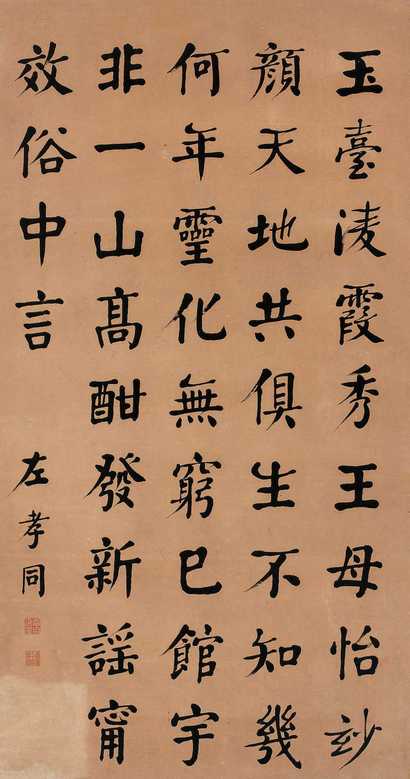 玉臺凌霞秀王母怡玅
顏天地共俱生不知幾
何年靈化無窮巳館宇
非一山高酣發新謡甯
效俗中言
左孝同